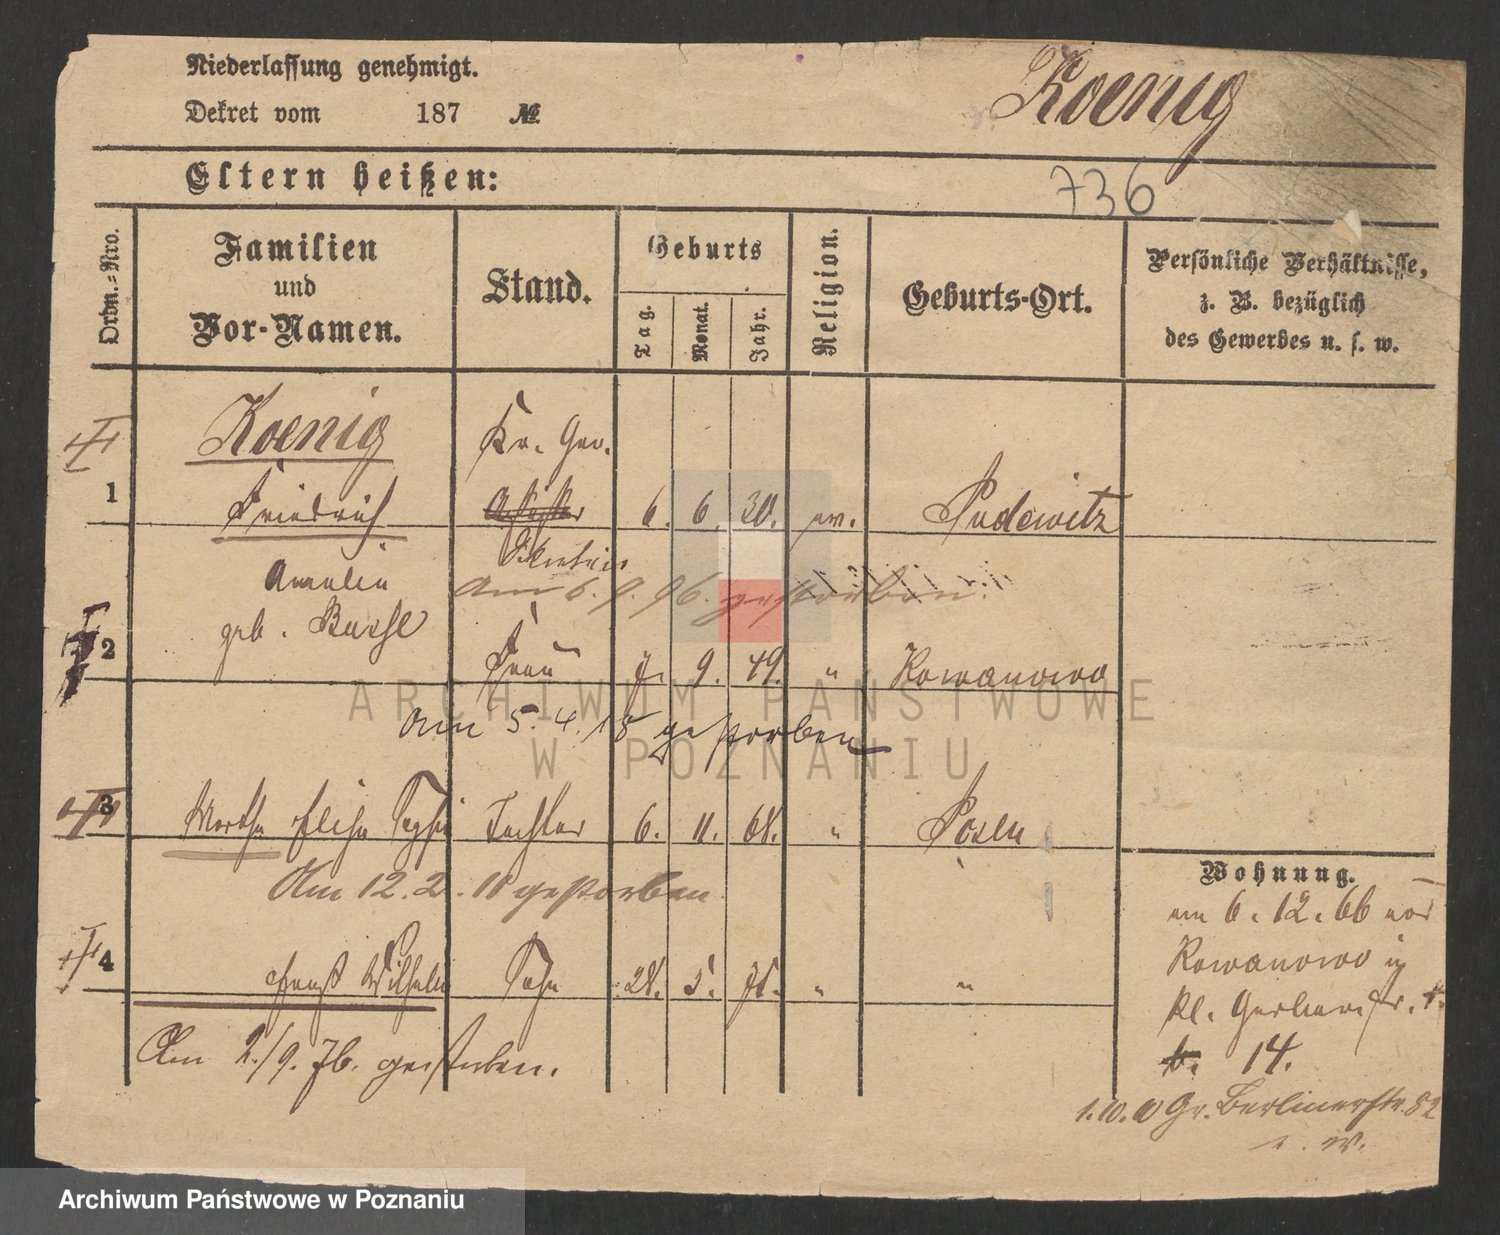 Niederlassung genehmigt.
Dekret vom 187 №
Koenig
Eltern heißen:
736
Ordn.-Nro.
Familien und Vor-Namen.
Stand.
Geburts
Tag.
Monat.
Jahr.
Religion.
Geburts-Ort.
Persönliche Verhältnisse,
z. B. bezüglich
des Gewerbes u. s. w.
Koenig Kr. Ger.
1 Friedrich 6. 6. 30. ev. Pudewitz
Am 6. 9. 96. gestorben.
Amalie
geb. Busse
2 Frau 9. 49. " Kowanowo
Am 5. 4. 18 gestorben
3 Martha Tochter 6. 11. 68. " Posen
Am 12. 2. gestorben
4 Ernst Wilhelm Sohn 28. 5. " "
Am 2./9. 76. gestorben.
Wohnung.
am 6. 12. 66 von
Kowanowo in
Kl. Gerberstr.
14.
1. 10. Gr. Berlinerstr. 82
ARCHIWUM PAŃSTWOWE
W POZNANIU
Archiwum Państwowe w Poznaniu